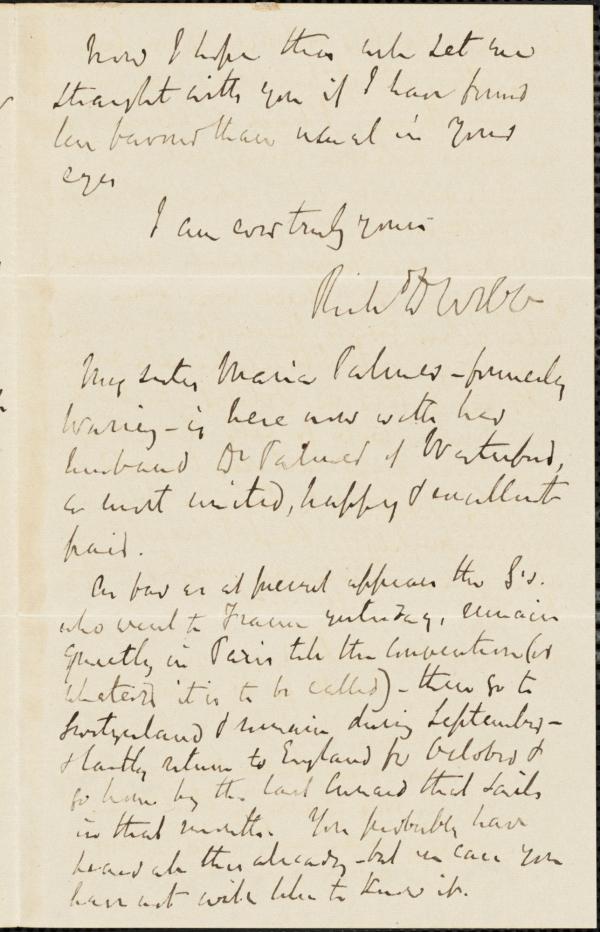 Now I hope this will set me
straight with you if I have found
less favour than usual in your
eyes
I am ever truly yours
Richd D Webb
My sister Maria Palmer - formerly
Waring - is here now with her
husband Dr Palmer of Waterford,
a most united, happy & excellent
pair.
As far as at present appears the G's.
who went to France yesterday, remain
quietly in Paris till the Convention (or
whatever it is to be called) - then go to
Switzerland & remain during September -
& lastly return to England for October &
go home by the last Cunard that sails
in that month. You probably have
heard all this already - but in case you
have not will like to know it.